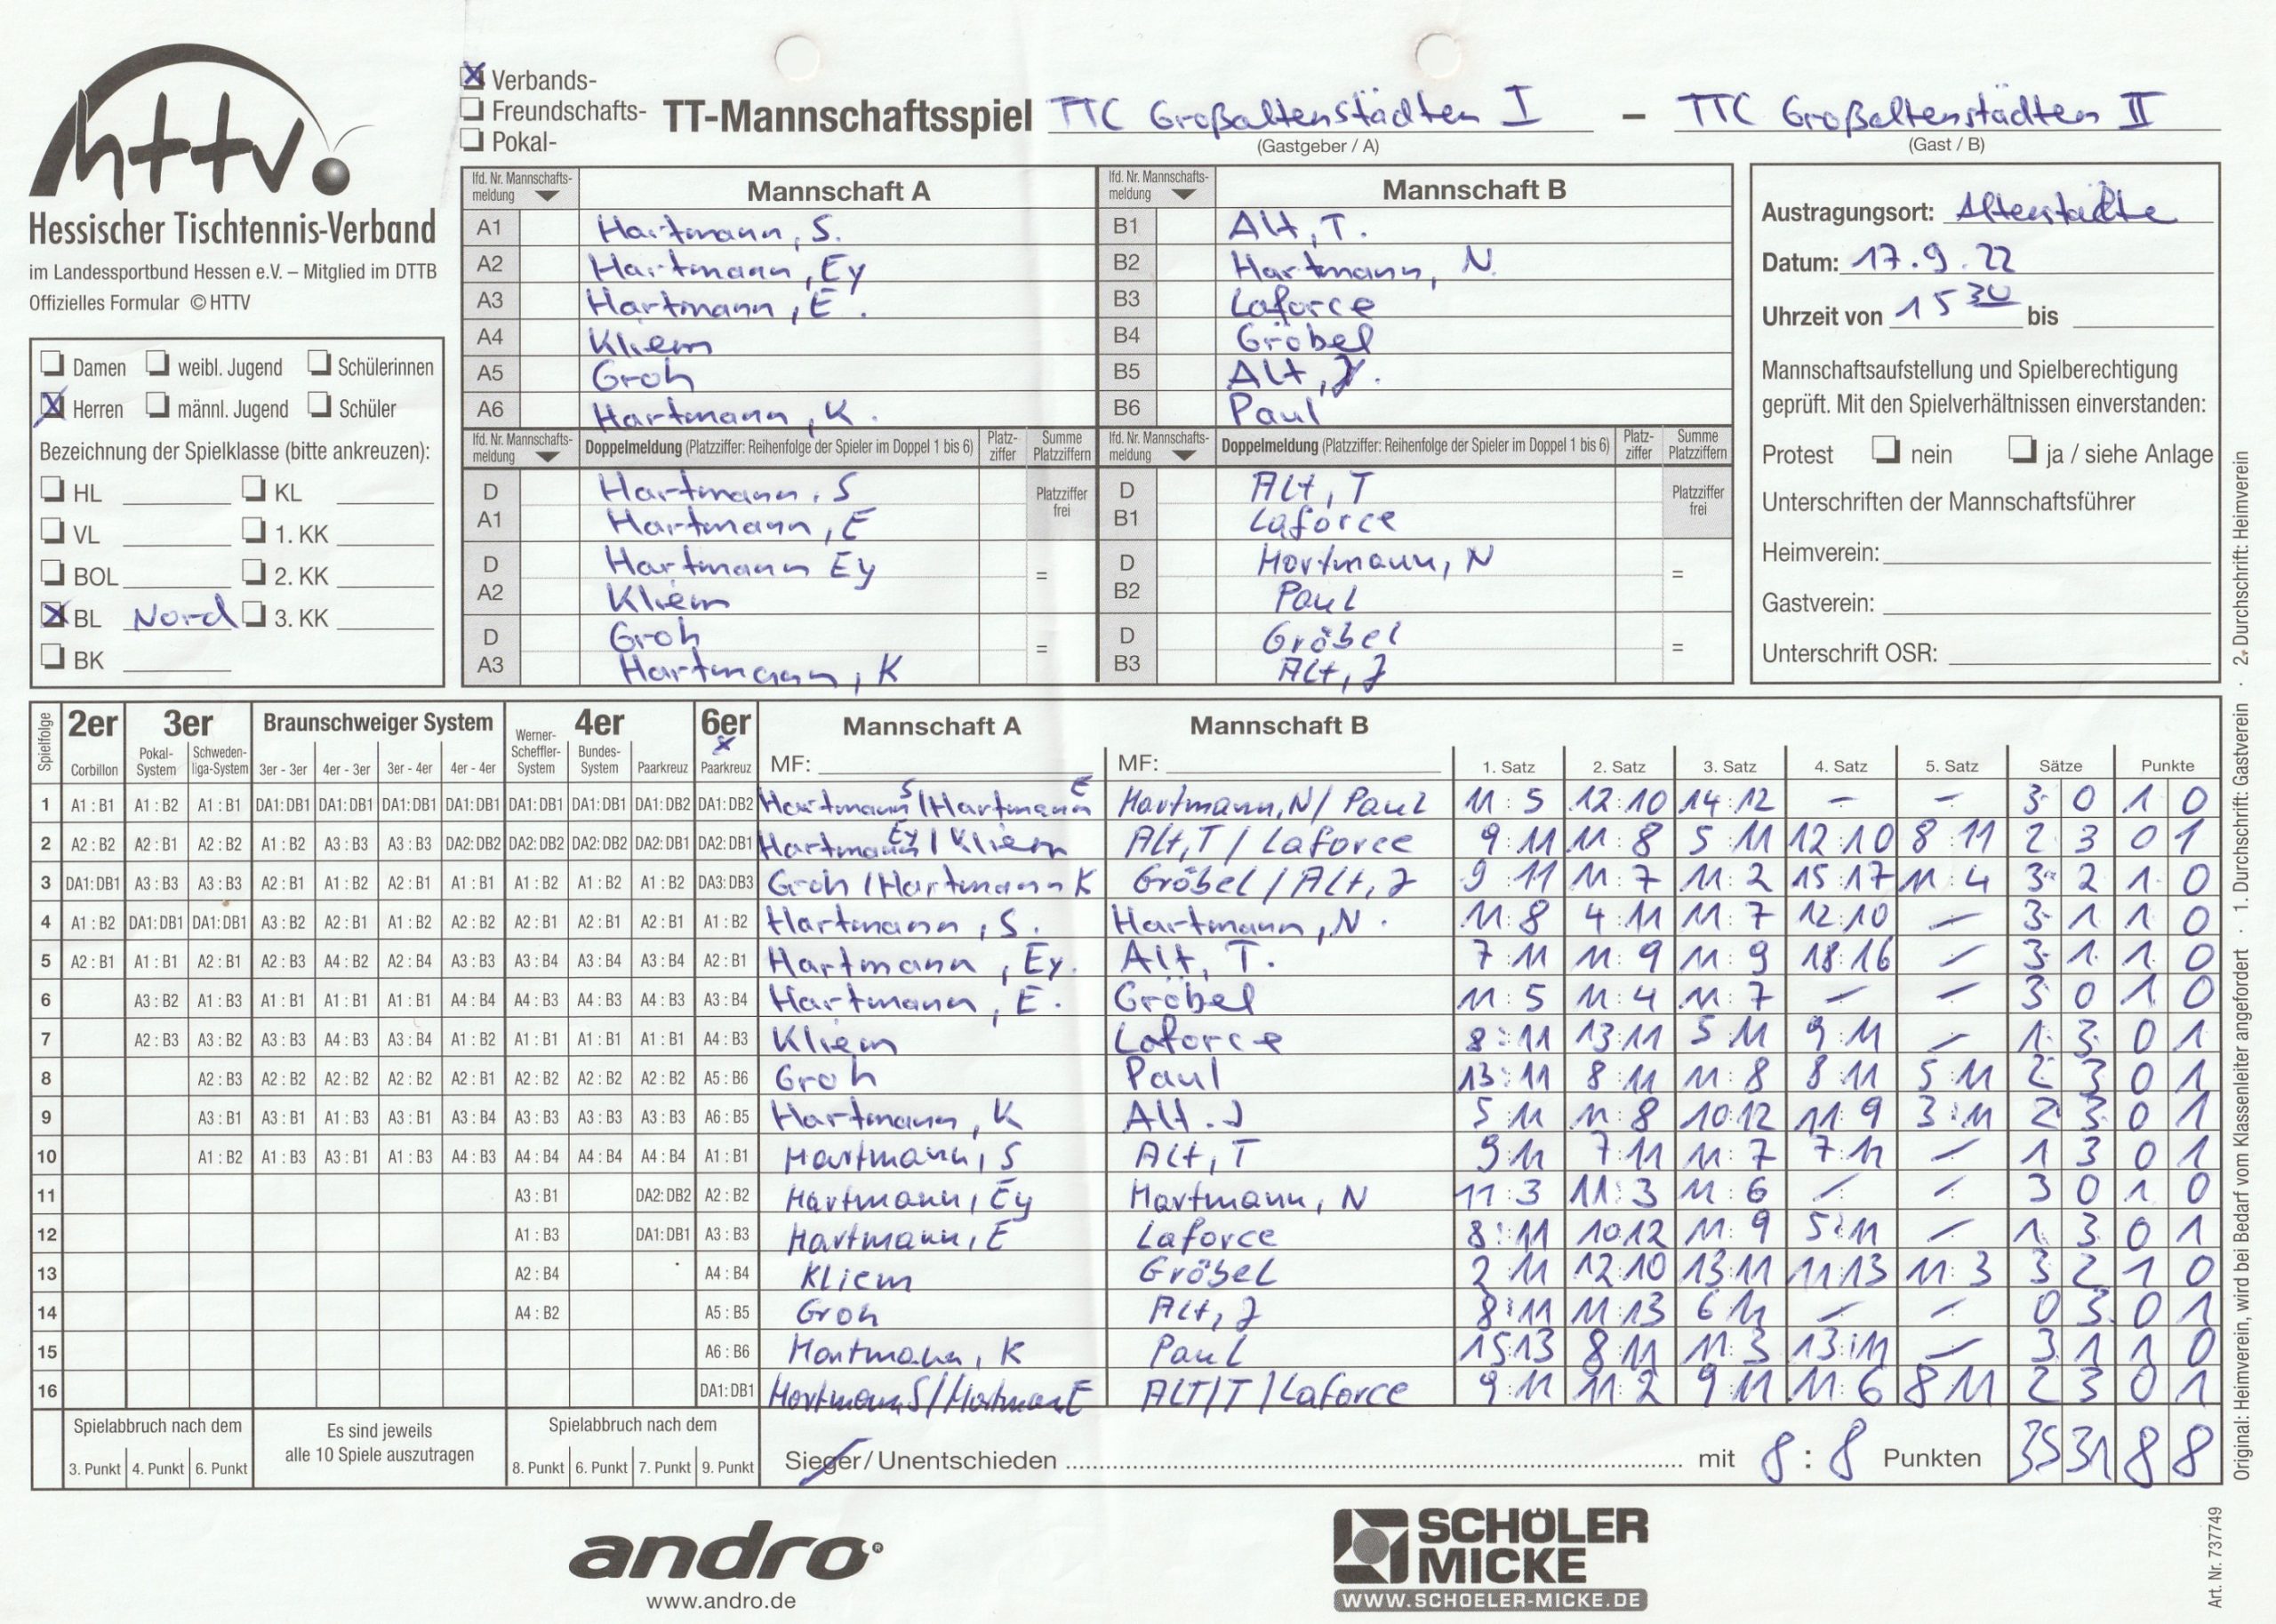 httv
Hessischer Tischtennis-Verband
im Landessportbund Hessen e.V. – Mitglied im DTTB
Offizielles Formular © HTTV
X Verbands-
Freundschafts-
Pokal-
TT-Mannschaftsspiel TTC Großaltenstädten I – TTC Großaltenstädten II
(Gastgeber / A) (Gast / B)
Damen weibl. Jugend Schülerinnen
X Herren männl. Jugend Schüler
Bezeichnung der Spielklasse (bitte ankreuzen):
HL KL
VL 1. KK
BOL 2. KK
X BL Nord 3. KK
BK
lfd. Nr. Mannschafts-meldung Mannschaft A lfd. Nr. Mannschafts-meldung Mannschaft B
A1 Hartmann, S. B1 Alt, T.
A2 Hartmann, Ey B2 Hartmann, N.
A3 Hartmann, E. B3 Laforce
A4 Kliem B4 Gröbel
A5 Groh B5 Alt, J.
A6 Hartmann, K. B6 Paul
lfd. Nr. Mannschafts-meldung Doppelmeldung (Platzziffer: Reihenfolge der Spieler im Doppel 1 bis 6) Platz-ziffer Summe Platzziffern lfd. Nr. Mannschafts-meldung Doppelmeldung (Platzziffer: Reihenfolge der Spieler im Doppel 1 bis 6) Platz-ziffer Summe Platzziffern
D Hartmann, S Platzziffer frei D Alt, T Platzziffer frei
A1 Hartmann, E B1 Laforce
D Hartmann Ey = D Hartmann, N =
A2 Kliem B2 Paul
D Groh = D Gröbel =
A3 Hartmann, K B3 Alt, J
Austragungsort: Altenstädte
Datum: 17.9.22
Uhrzeit von 15 30 bis
Mannschaftsaufstellung und Spielberechtigung
geprüft. Mit den Spielverhältnissen einverstanden:
Protest nein ja / siehe Anlage
Unterschriften der Mannschaftsführer
Heimverein:
Gastverein:
Unterschrift OSR:
Spielfolge 2er 3er Braunschweiger System 4er 6er Mannschaft A Mannschaft B
Corbillon Pokal-System Schweden-liga-System 3er - 3er 4er - 3er 3er - 4er 4er - 4er Werner-Scheffler-System Bundes-System Paarkreuz x Paarkreuz MF: MF: 1. Satz 2. Satz 3. Satz 4. Satz 5. Satz Sätze Punkte
1 A1 : B1 A1 : B2 A1 : B1 DA1: DB1 DA1: DB1 DA1: DB1 DA1: DB1 DA1: DB1 DA1: DB1 DA1: DB2 DA1: DB2 Hartmann S / Hartmann E Hartmann, N / Paul 11 : 5 12:10 14:12 – – 3 0 1 0
2 A2 : B2 A2 : B1 A2 : B2 A1 : B2 A3 : B3 A3 : B3 DA2: DB2 DA2: DB2 DA2: DB2 DA2: DB1 DA2: DB1 Hartmann Ey / Kliem Alt, T / Laforce 9 : 11 11 : 8 5 : 11 12:10 8 : 11 2 3 0 1
3 DA1: DB1 A3 : B3 A3 : B3 A2 : B1 A1 : B2 A2 : B1 A1 : B1 A1 : B2 A1 : B2 A1 : B2 DA3: DB3 Groh / Hartmann K Gröbel / Alt, J 9 : 11 11 : 7 11 : 2 15:17 11 : 4 3 2 1 0
4 A1 : B2 DA1: DB1 DA1: DB1 A3 : B2 A2 : B1 A1 : B2 A2 : B2 A2 : B1 A2 : B1 A2 : B1 A1 : B2 Hartmann, S. Hartmann, N. 11 : 8 4 : 11 11 : 7 12:10 – 3 1 1 0
5 A2 : B1 A1 : B1 A2 : B1 A2 : B3 A4 : B2 A2 : B4 A3 : B3 A3 : B4 A3 : B4 A3 : B4 A2 : B1 Hartmann, Ey. Alt, T. 7 : 11 11 : 9 11 : 9 18:16 – 3 1 1 0
6 A3 : B2 A1 : B3 A1 : B1 A1 : B1 A1 : B1 A4 : B4 A4 : B3 A4 : B3 A4 : B3 A3 : B4 Hartmann, E. Gröbel 11 : 5 11 : 4 11 : 7 – – 3 0 1 0
7 A2 : B3 A3 : B2 A3 : B3 A4 : B3 A3 : B4 A1 : B2 A1 : B1 A1 : B1 A1 : B1 A4 : B3 Kliem Laforce 8 : 11 13:11 5 : 11 9 : 11 – 1 3 0 1
8 A2 : B3 A2 : B2 A2 : B2 A2 : B2 A2 : B1 A2 : B2 A2 : B2 A2 : B2 A5 : B6 Groh Paul 13 : 11 8 : 11 11 : 8 8 : 11 5 : 11 2 3 0 1
9 A3 : B1 A3 : B1 A1 : B3 A3 : B1 A3 : B4 A3 : B3 A3 : B3 A3 : B3 A6 : B5 Hartmann, K Alt. J 5 : 11 11 : 8 10:12 11 : 9 3 : 11 2 3 0 1
10 A1 : B2 A1 : B3 A3 : B1 A1 : B3 A4 : B3 A4 : B4 A4 : B4 A4 : B4 A1 : B1 Hartmann, S Alt, T 9 : 11 7 : 11 11 : 7 7 : 11 – 1 3 0 1
11 A3 : B1 DA2: DB2 A2 : B2 Hartmann, Ey Hartmann, N 11 : 3 11 : 3 11 : 6 – – 3 0 1 0
12 A1 : B3 DA1: DB1 A3 : B3 Hartmann, E Laforce 8 : 11 10:12 11 : 9 5 : 11 – 1 3 0 1
13 A2 : B4 A4 : B4 Kliem Gröbel 2 : 11 12:10 13:11 11:13 11 : 3 3 2 1 0
14 A4 : B2 A5 : B5 Groh Alt, J 8 : 11 11 : 13 6 : 11 – – 0 3 0 1
15 A6 : B6 Hartmann, K Paul 15:13 8 : 11 11 : 3 13 : 11 – 3 1 1 0
16 DA1: DB1 Hartmann S / Hartmann E ALT/T / Laforce 9 : 11 11 : 2 9 : 11 11 : 6 8 : 11 2 3 0 1
Spielabbruch nach dem Es sind jeweils alle 10 Spiele auszutragen Spielabbruch nach dem
3. Punkt 4. Punkt 6. Punkt 8. Punkt 6. Punkt 7. Punkt 9. Punkt Sieger / Unentschieden mit 8 : 8 Punkten 35 31 8 8
Original: Heimverein, wird bei Bedarf vom Klassenleiter angefordert · 1. Durchschrift: Gastverein · 2. Durchschrift: Heimverein
Art. Nr. 737749
andro®
www.andro.de
SCHÖLER
MICKE
WWW.SCHOELER-MICKE.DE